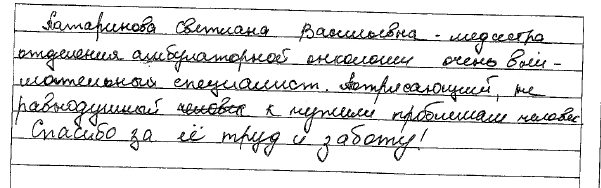 Латаринова Светлана Васильевна - медсестра
отделения амбулаторной онкологии очень вни-
мательный специалист. Потрясающий, не
равнодушный человек к чужим проблемам человек
Спасибо за её труд и заботу!